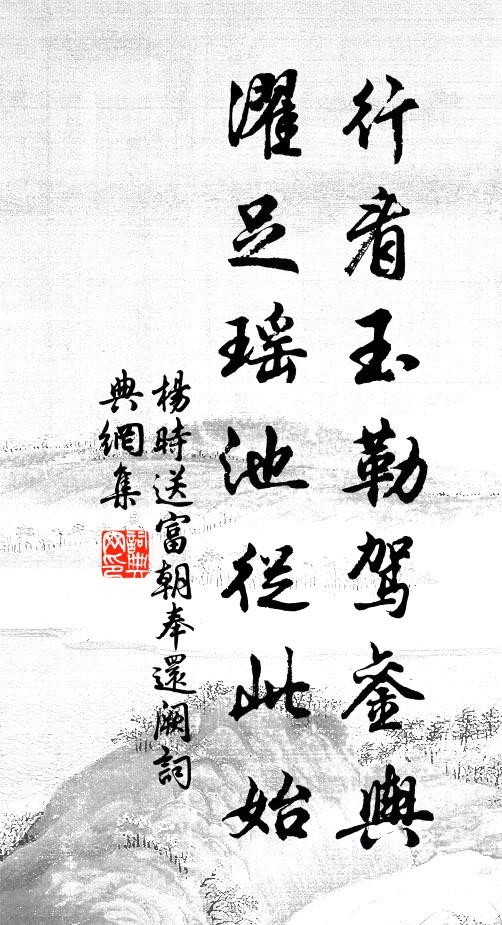 行看玉勒駕鑾輿
濯足瑤池從此始
楊時送富朝奉還闕詞
典網集
詞典網印